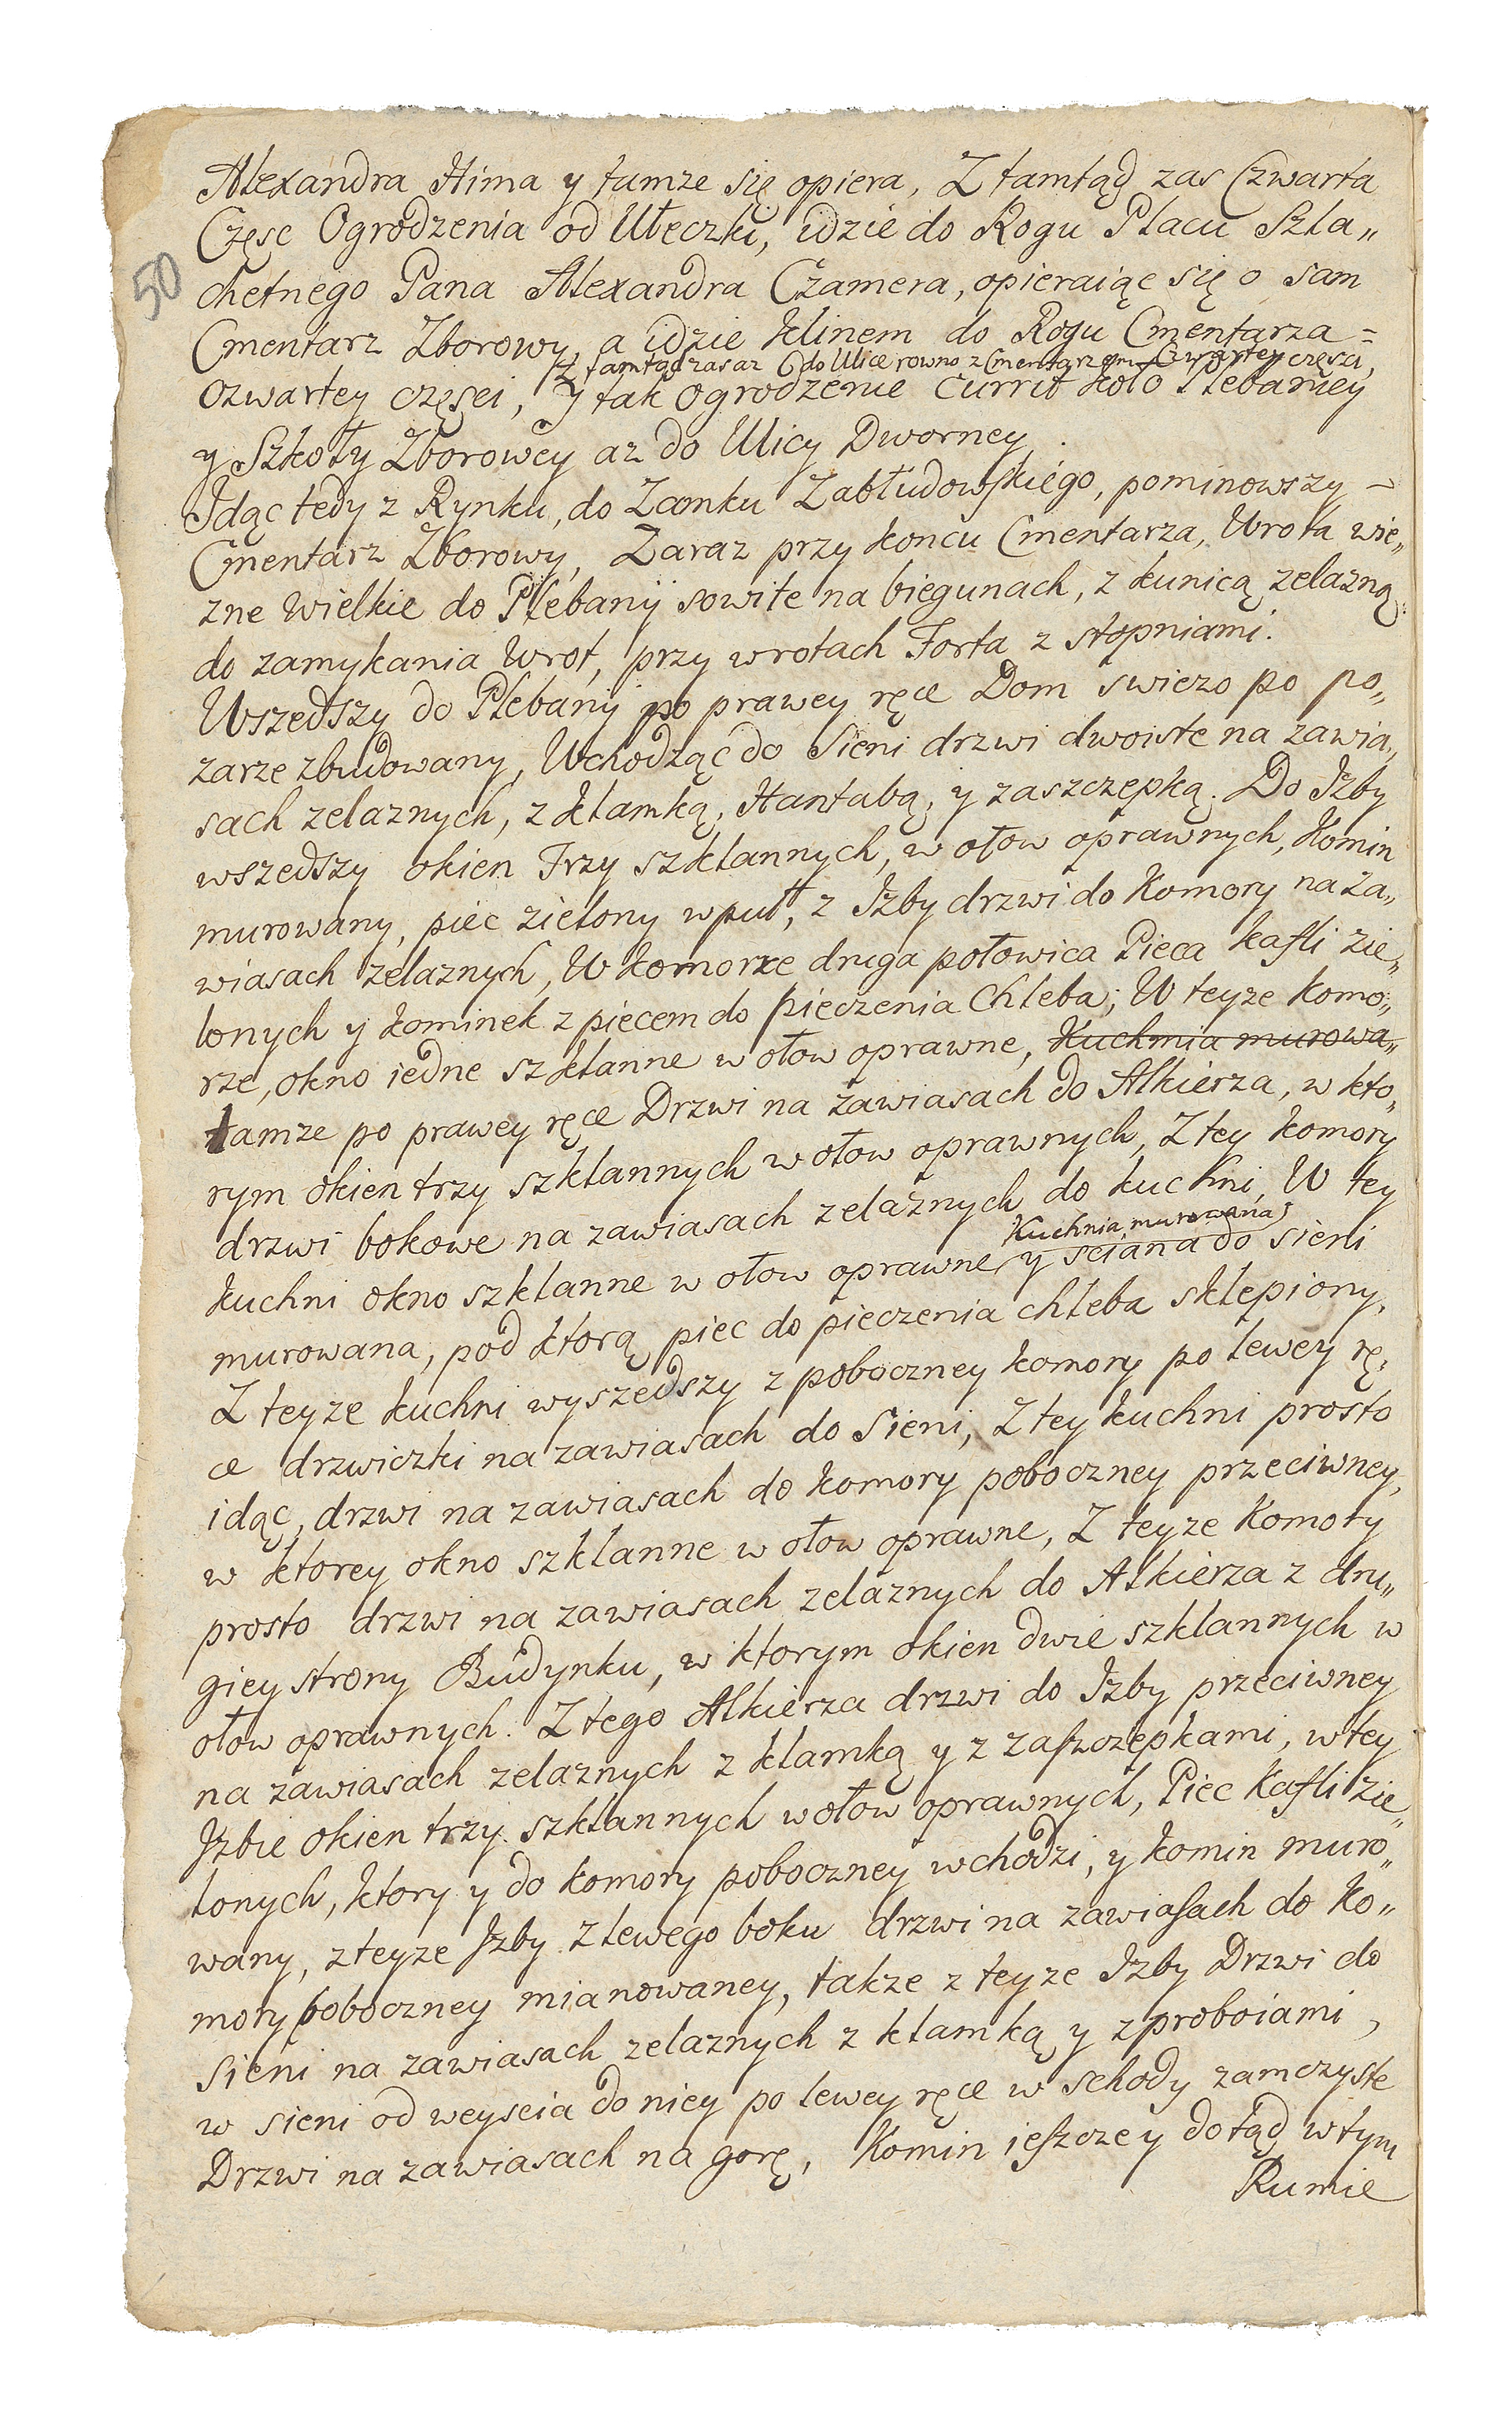 Alexandra Hima y tamze się opiera, Z tamtąd zas Czwarta
Częsc Ogrodzenia od Ułeczki, idzie do Rogu Placu Szla„
50
chetnego Pana Alexandra Czamera, opieraiąc się o sam
Cmentarz Zborowy, a idzie klinem do Rogu Cmentarza =
Z tamtąd zas az do Ulice rowno z Cmentarzem Czwartey części,
Czwartey częsci, y tak Ogrodzenie currit koło Plebaniey
y Szkoły Zborowey az do Ulicy Dworney.
Idąc tedy z Rynku, do Zamku Zabłudowskiego, pominowszy –
Cmentarz Zborowy, Zaraz przy koncu Cmentarza, Wrota wie„
zne wielkie do Plebanÿ sowite na biegunach, z kunicą zelazną
do zamykania Wrot, przy wrotach Forta z stopniami.
Wszedszy do Plebanÿ po prawey ręce Dom swiezo po po„
zarze zbudowany, Wchodząc do Sieni drzwi dwoiste na zawia„
sach zelaznych, z klamką, Hantabą, y zaszczepką. Do Izby
wszedszy okien Trzy szklannych, w ołow oprawnych, Komin
murowany, piec zielony wpuł, z Izby drzwi do Komory na za„
wiasach zelaznych, W komorze druga połowica Pieca kafli zie„
lonych y kominek z piecem do pieczenia Chleba; W teyze komo„
rze, okno iedne szklanne w ołow oprawne, Kuchnia murowa„
tamze po prawey ręce Drzwi na zawiasach do Alkierza, w kto„
rym okien trzy szklannych w ołow oprawnych, Z tey komory
drzwi bokowe na zawiasach zelaznych do kuchni, W tey
Kuchnia murowana
kuchni okno szklanne w ołow oprawne y sciana do sieni
murowana, pod ktorą piec do pieczenia chleba sklepiony,
Z teyze kuchni wyszedszy z poboczney komory po lewey rę„
ce drzwiczki na zawiasach do Sieni, Z tey kuchni prosto
idąc, drzwi na zawiasach do komory poboczney przeciwney,
w ktorey okno szklanne w ołow oprawne, Z teyze Komory
prosto drzwi na zawiasach zelaznych do Alkierza z dru„
giey strony Budynku, w ktorym okien dwie szklannych w
ołow oprawnych. Z tego Alkierza drzwi do Izby przeciwney
na zawiasach zelaznych z klamką y z zaszczepkami, w tey
Izbie okien trzy szklannych w ołow oprawnych, Piec Kafli zie„
lonych, ktory y do komory poboczney wchodzi, y komin muro„
wany, z teyze Izby Z lewego boku drzwi na zawiasach do Ko„
mory poboczney mianowaney, takze z teyze Izby Drzwi do
sieni na zawiasach zelaznych z klamką y z proboiami,
w sieni od weyscia do niey po lewey ręce w schody zamczyste
Drzwi na zawiasach na gorę, Komin ieszcze y dotąd w tym
Rumie